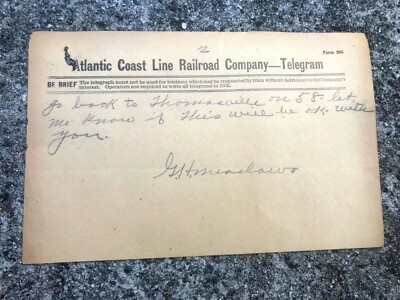 2
Form 965
Atlantic Coast Line Railroad Company—Telegram
BE BRIEF
The telegraph must not be used for business which may be transacted by train without detriment to the Company's
interest. Operators are required to write all telegrams in INK.
go back to Thomasville on 58. let
me know if this will be ok. with
you.